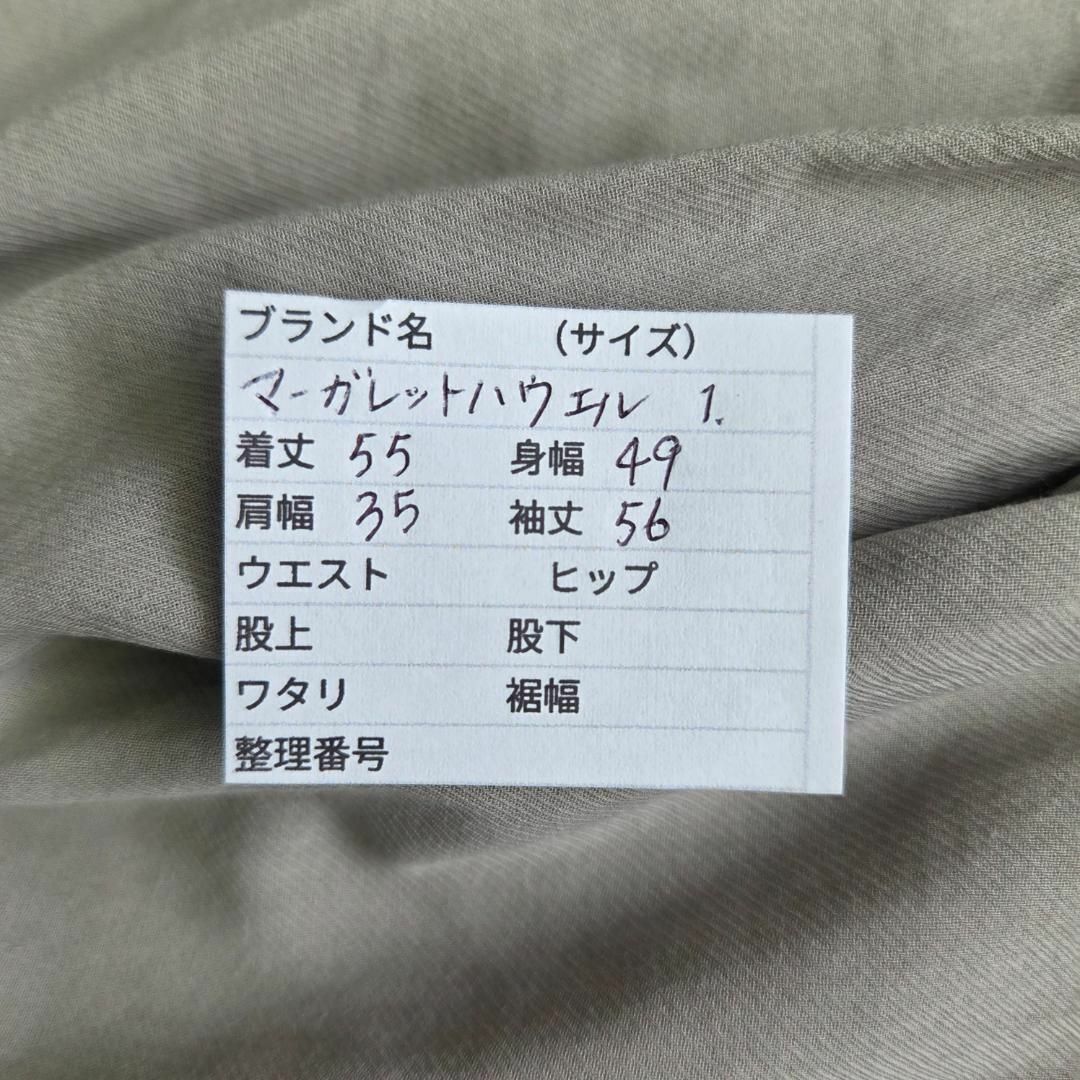 ブランド名 (サイズ)
マーガレットハウエル 1.
着丈 55 身幅 49
肩幅 35 袖丈 56
ウエスト ヒップ
股上 股下
ワタリ 裾幅
整理番号